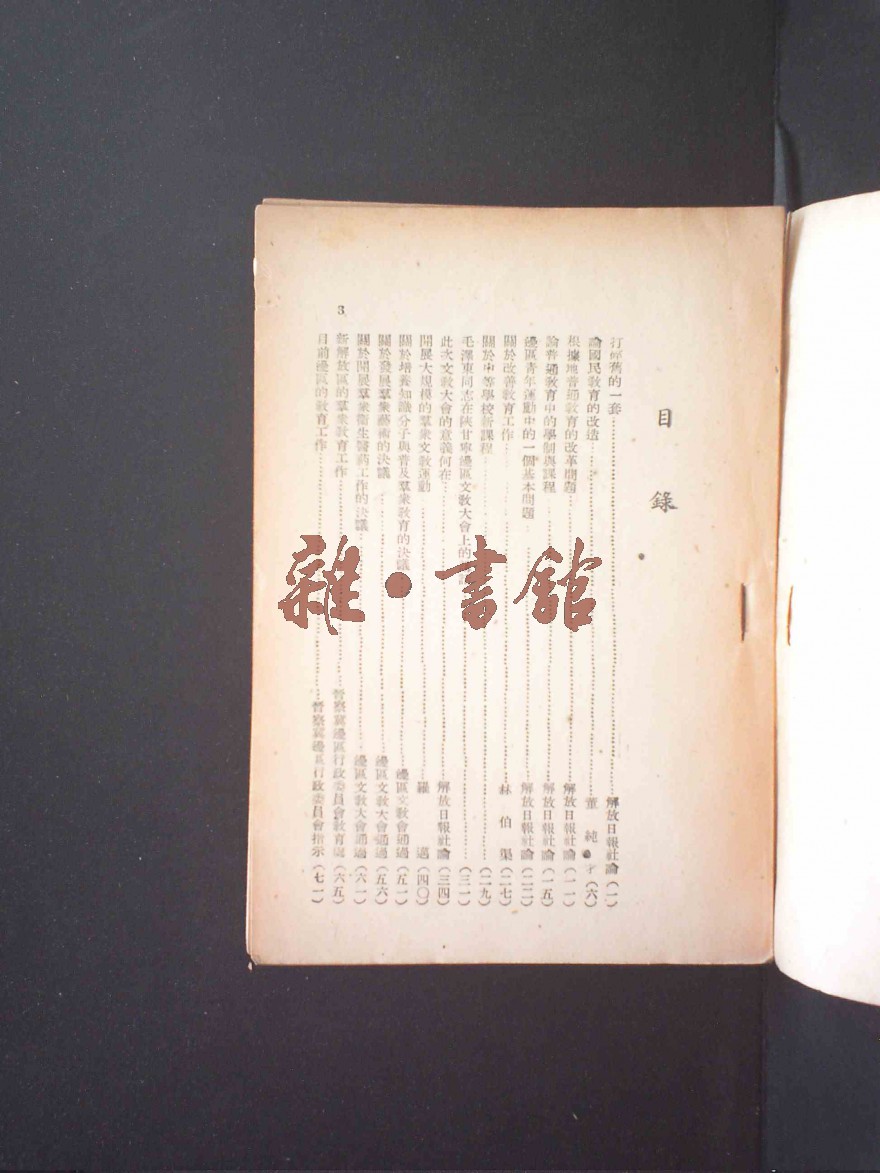 目錄
打碎舊的一套……解放日報社論(一)
論國民教育的改造……董純才(六)
根據地普通教育的改革問題……解放日報社論(一一)
論普通教育中的學制與課程……解放日報社論(一五)
邊區青年運動中的一個基本問題……解放日報社論(二二)
關於改善教育工作……林伯渠(二七)
關於中等學校新課程……(二九)
毛澤東同志在陝甘寧邊區文敎大會上的……(三一)
此次文敎大會的意義何在……解放日報社論(三四)
開展大規模的羣衆文敎運動……羅邁(四〇)
關於培養知識分子與普及羣衆敎育的決議……邊區文敎會通過(五一)
關於發展羣衆藝術的決議……邊區文敎大會通過(五六)
關於開展羣衆衛生醫藥工作的決議……邊區文敎大會通過(六一)
新解放區的羣衆敎育工作……晉察冀邊區行政委員會敎育處(六五)
目前邊區的敎育工作……晉察冀邊區行政委員會指示(七一)
3
雜·書館